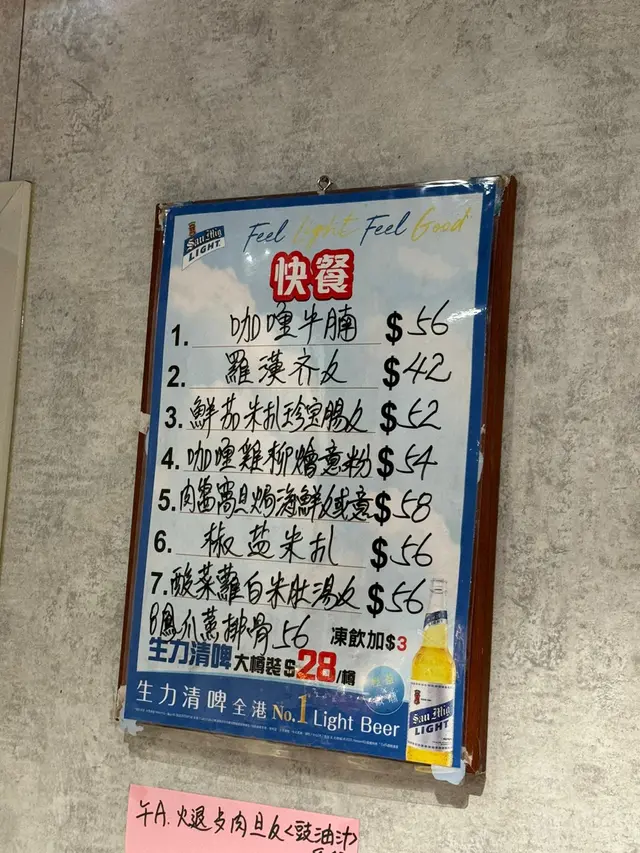 San Mig LIGHT
Feel Light Feel Good
快餐
1. 咖喱牛腩 $56
2. 羅漢齐反 $42
3. 鮮茄朱扒珍宝腸反 $52
4. 咖喱雞柳燴意粉 $54
5. 肉醬窩旦焗海鮮反或意 $58
6. 椒盐朱扒 $56
7. 酸菜蘿白朱肚湯反 $56
8 鳳爪蒸排骨 56
凍飲加$3
生力清啤 大樽裝 $28/樽
生力清啤全港 No.1 Light Beer
San Mig LIGHT
午A. 火退歺肉旦反<豉油汁>